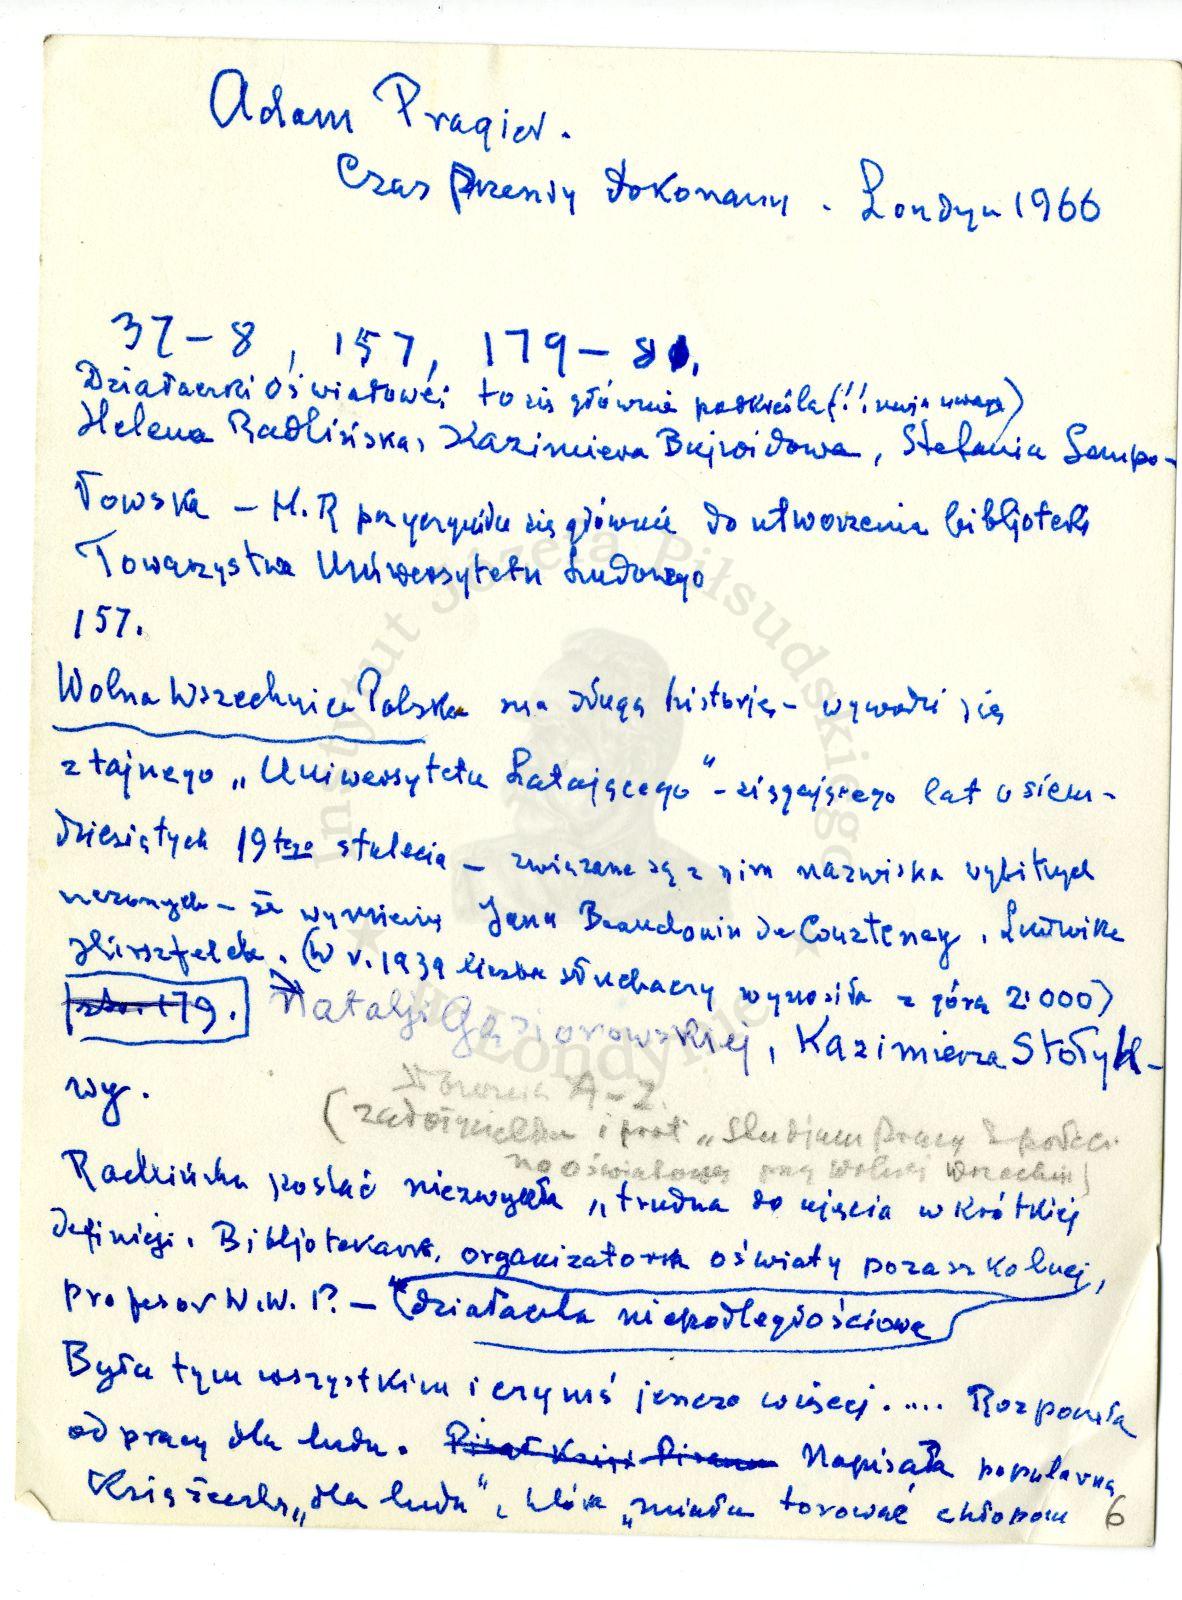 Adam Pragier.
Czas przeszły dokonany. Londyn 1966
37-8, 157, 179-81.
Działaczki Oświatowe; to się głównie podkreśla (!! moja uwaga)
Helena Radlińska, Kazimiera Bujwidowa, Stefania Sempo-
łowska - H.R przyczyniła się głównie do utworzenia bibljoteki
Towarzystwa Uniwersytetu Ludowego
157.
Wolna Wszechnica Polska ma długą historję - wywodzi się
z tajnego „Uniwersytetu Latającego" - sięgającego lat osiem-
dziesiątych 19tego stulecia - związane są z nim nazwiska wybitnych
uczonych - że wymienię Jana Baudouin de Courtenay, Ludwika
Hirszfelda. (W r. 1939 liczba słuchaczy wynosiła z górą 2.000)
str. 179. Natalji Gąsiorowskiej, Kazimierza Stołyh-
wy.
A-Z.
(założycielka i prof „Studjum Pracy Społecz-
no oświatowej przy Wolnej Wszechn)
Radlińska postać niezwykła „trudna do ujęcia w krótkiej
definicji. Bibljotekarka, organizatorka oświaty pozaszkolnej,
profesor W.W.P. - "działaczka niepodległościowa
Była tym wszystkim i czymś jeszcze więcej ..... Rozpoczęła
od pracy dla ludu. Napisała popularną
Książeczkę „dla ludu", która „miała torować chłopom
6
Instytut Józefa Piłsudskiego
w Londynie